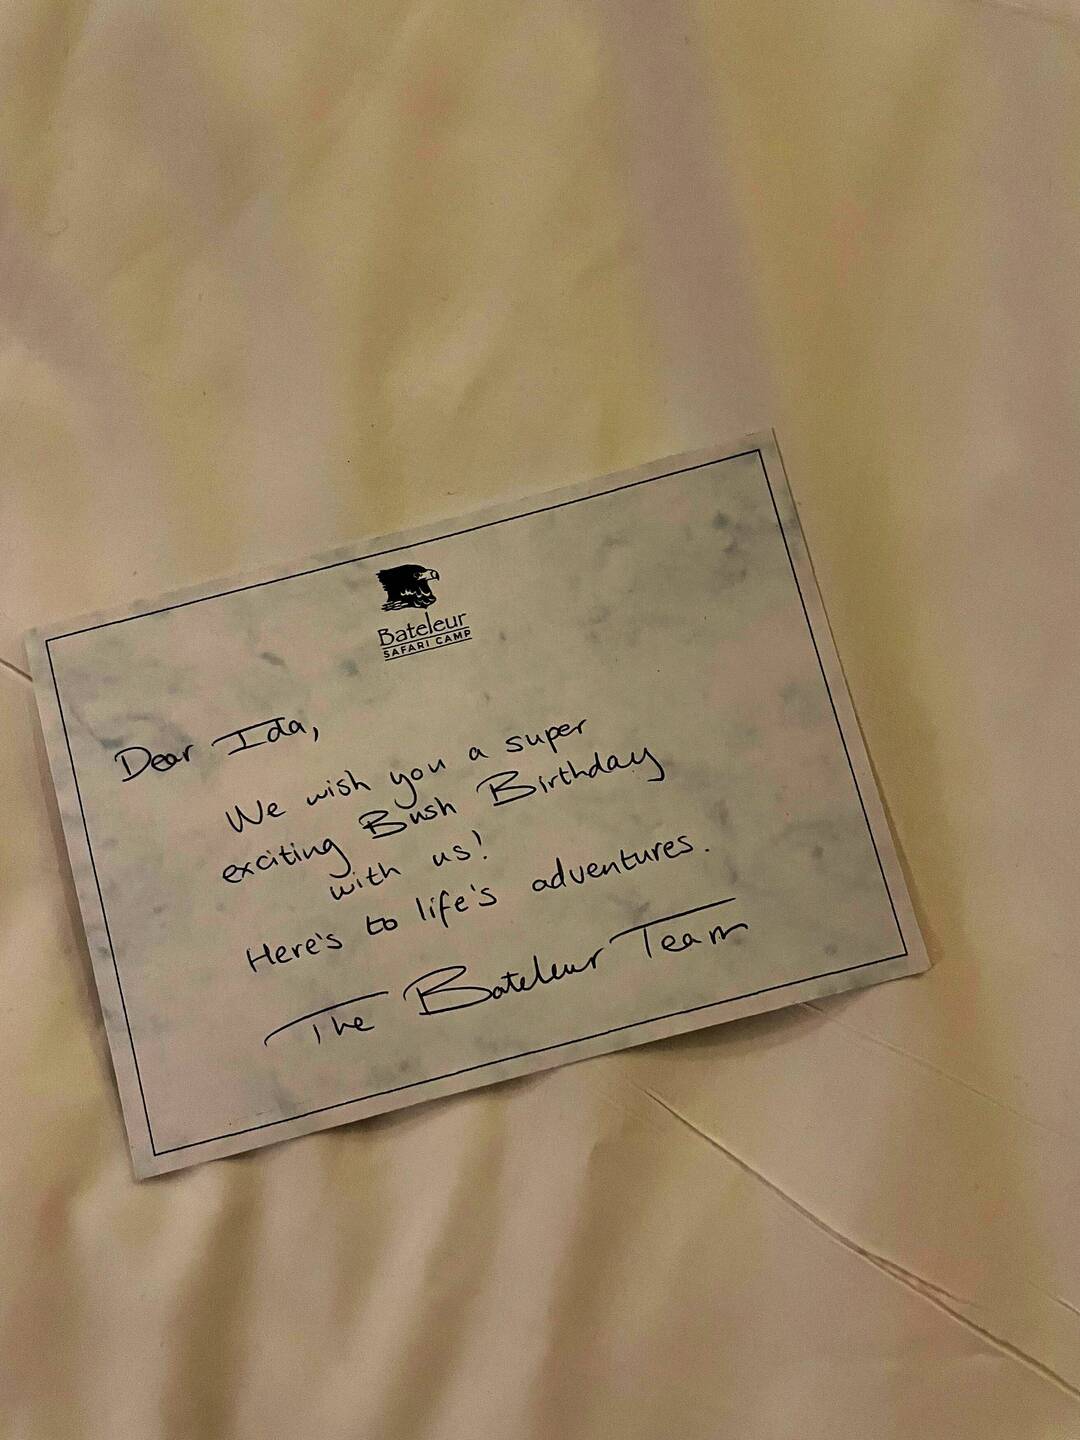 Bateleur
SAFARI CAMP
Dear Ida,
We wish you a super
exciting Bush Birthday
with us!
Here's to life's adventures.
The Bateleur Team